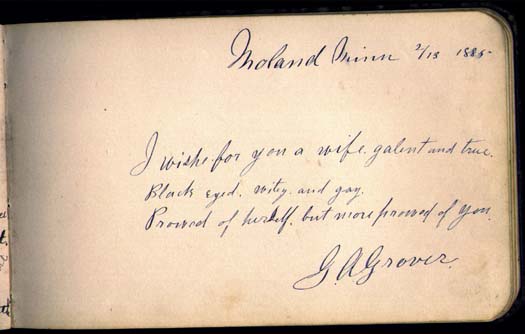 Moland Minn 2/13 1885
I wishe for you a wife galent and true.
Black eyed. witey. and gay.
Prowed of herself. but more prowed of you.
G. A. Grover.